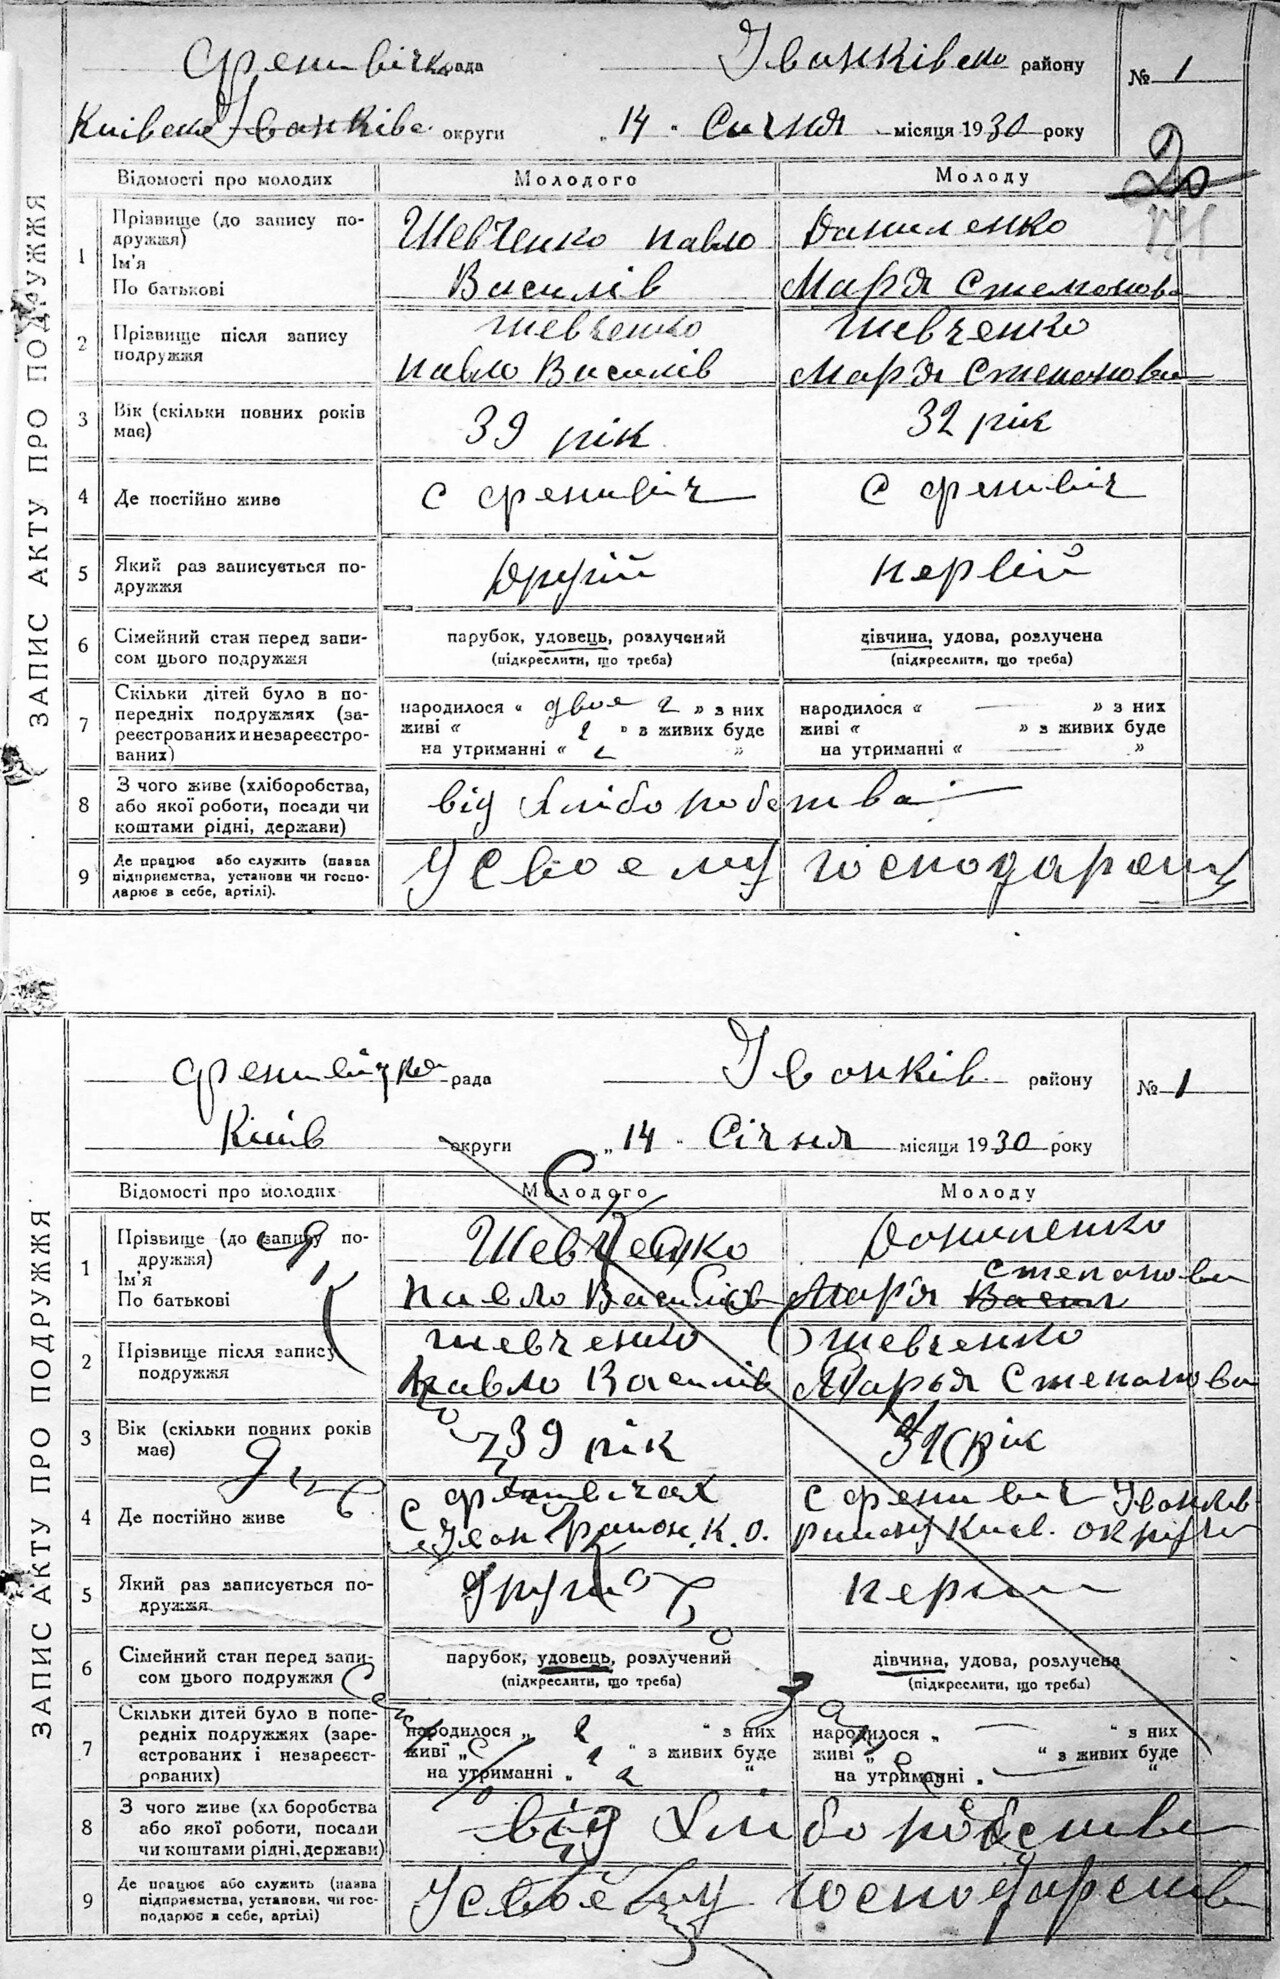 ЗАПИС АКТУ ПРО ПОДРУЖЖЯ
Фенивічка рада Іванківсько району № 1
Київська Іванківс округи „ 14 „ Сичня місяця 1930 року
20
Відомості про молодих Молодого Молоду
1 Прізвище (до запису по-
дружжя)
Ім'я
По батькові
Шевченко Павло
Василів
Даниленко
Мар'я Степанова
2 Прізвище після запису
подружжя
Шевченко
Павло Василів
Шевченко
Мар'я Степанова
3 Вік (скільки повних років
має)
39 рік
32 рік
4 Де постійно живе
С Фенивіч
С Фенивіч
5 Який раз записується по-
дружжя
Другій
Первій
6 Сімейний стан перед запи-
сом цього подружжя
парубок, удовець, розлучений
(підкреслити, що треба)
дівчина, удова, розлучена
(підкреслити, що треба)
7 Скільки дітей було в по-
передніх подружжях (за-
реєстрованих и незареєстро-
ваних)
народилося « двоя 2 » з них
живі « 2 » з живих буде
на утриманні « 2 »
народилося « » з них
живі « » з живих буде
на утриманні « »
8 З чого живе (хліборобства,
або якої роботи, посади чи
коштами рідні, держави)
від Хліборобства
9 Де працює або служить (назва
підприємства, установи чи госпо-
дарює в себе, артілі).
У своему господарст
ЗАПИС АКТУ ПРО ПОДРУЖЖЯ
Фенивічка рада Іванків району № 1
Київ округи „ 14 „ Січня місяця 1930 року
Відомості про молодих Молодого Молоду
1 Прізвище (до запису по-
дружжя)
Ім'я
По батькові
Шевченко
Павло Василів
Даниленко
Степанова
Мар'я Васил
2 Прізвище після запису
подружжя
Шевченко
Павло Василів
Шевченко
Марья Степанова
3 Вік (скільки повних років
має)
39 рік
32 рік
4 Де постійно живе
С Фенивічах
Іван Район. К. О.
С Фенивич Іванків
району Киев. округи
5 Який раз записується по-
дружжя
другий
перши
6 Сімейний стан перед запи-
сом цього подружжя
парубок, удовець, розлучений
(підкреслити, що треба)
дівчина, удова, розлучена
(підкреслити, що треба)
7 Скільки дітей було в попе-
редніх подружжях (заре-
єстрованих і незареєст-
рованих)
народилося „ 2 “ з них
живі „ 2 “ з живих буде
на утриманні „ 2 “
народилося „ “ з них
живі „ “ з живих буде
на утриманні „ “
8 З чого живе (хл боробства
або якої роботи, посади
чи коштами рідні, держави)
від Хліборобства
9 Де працює або служить (назва
підприємства, установи, чи гос-
подарює в себе, артілі)
У своему господарств